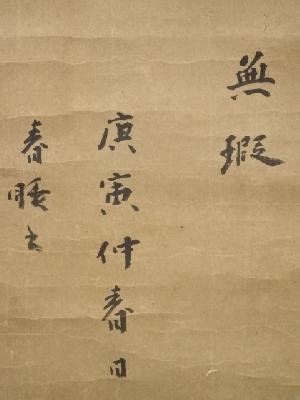 無瑕
庚寅仲春日
春暖